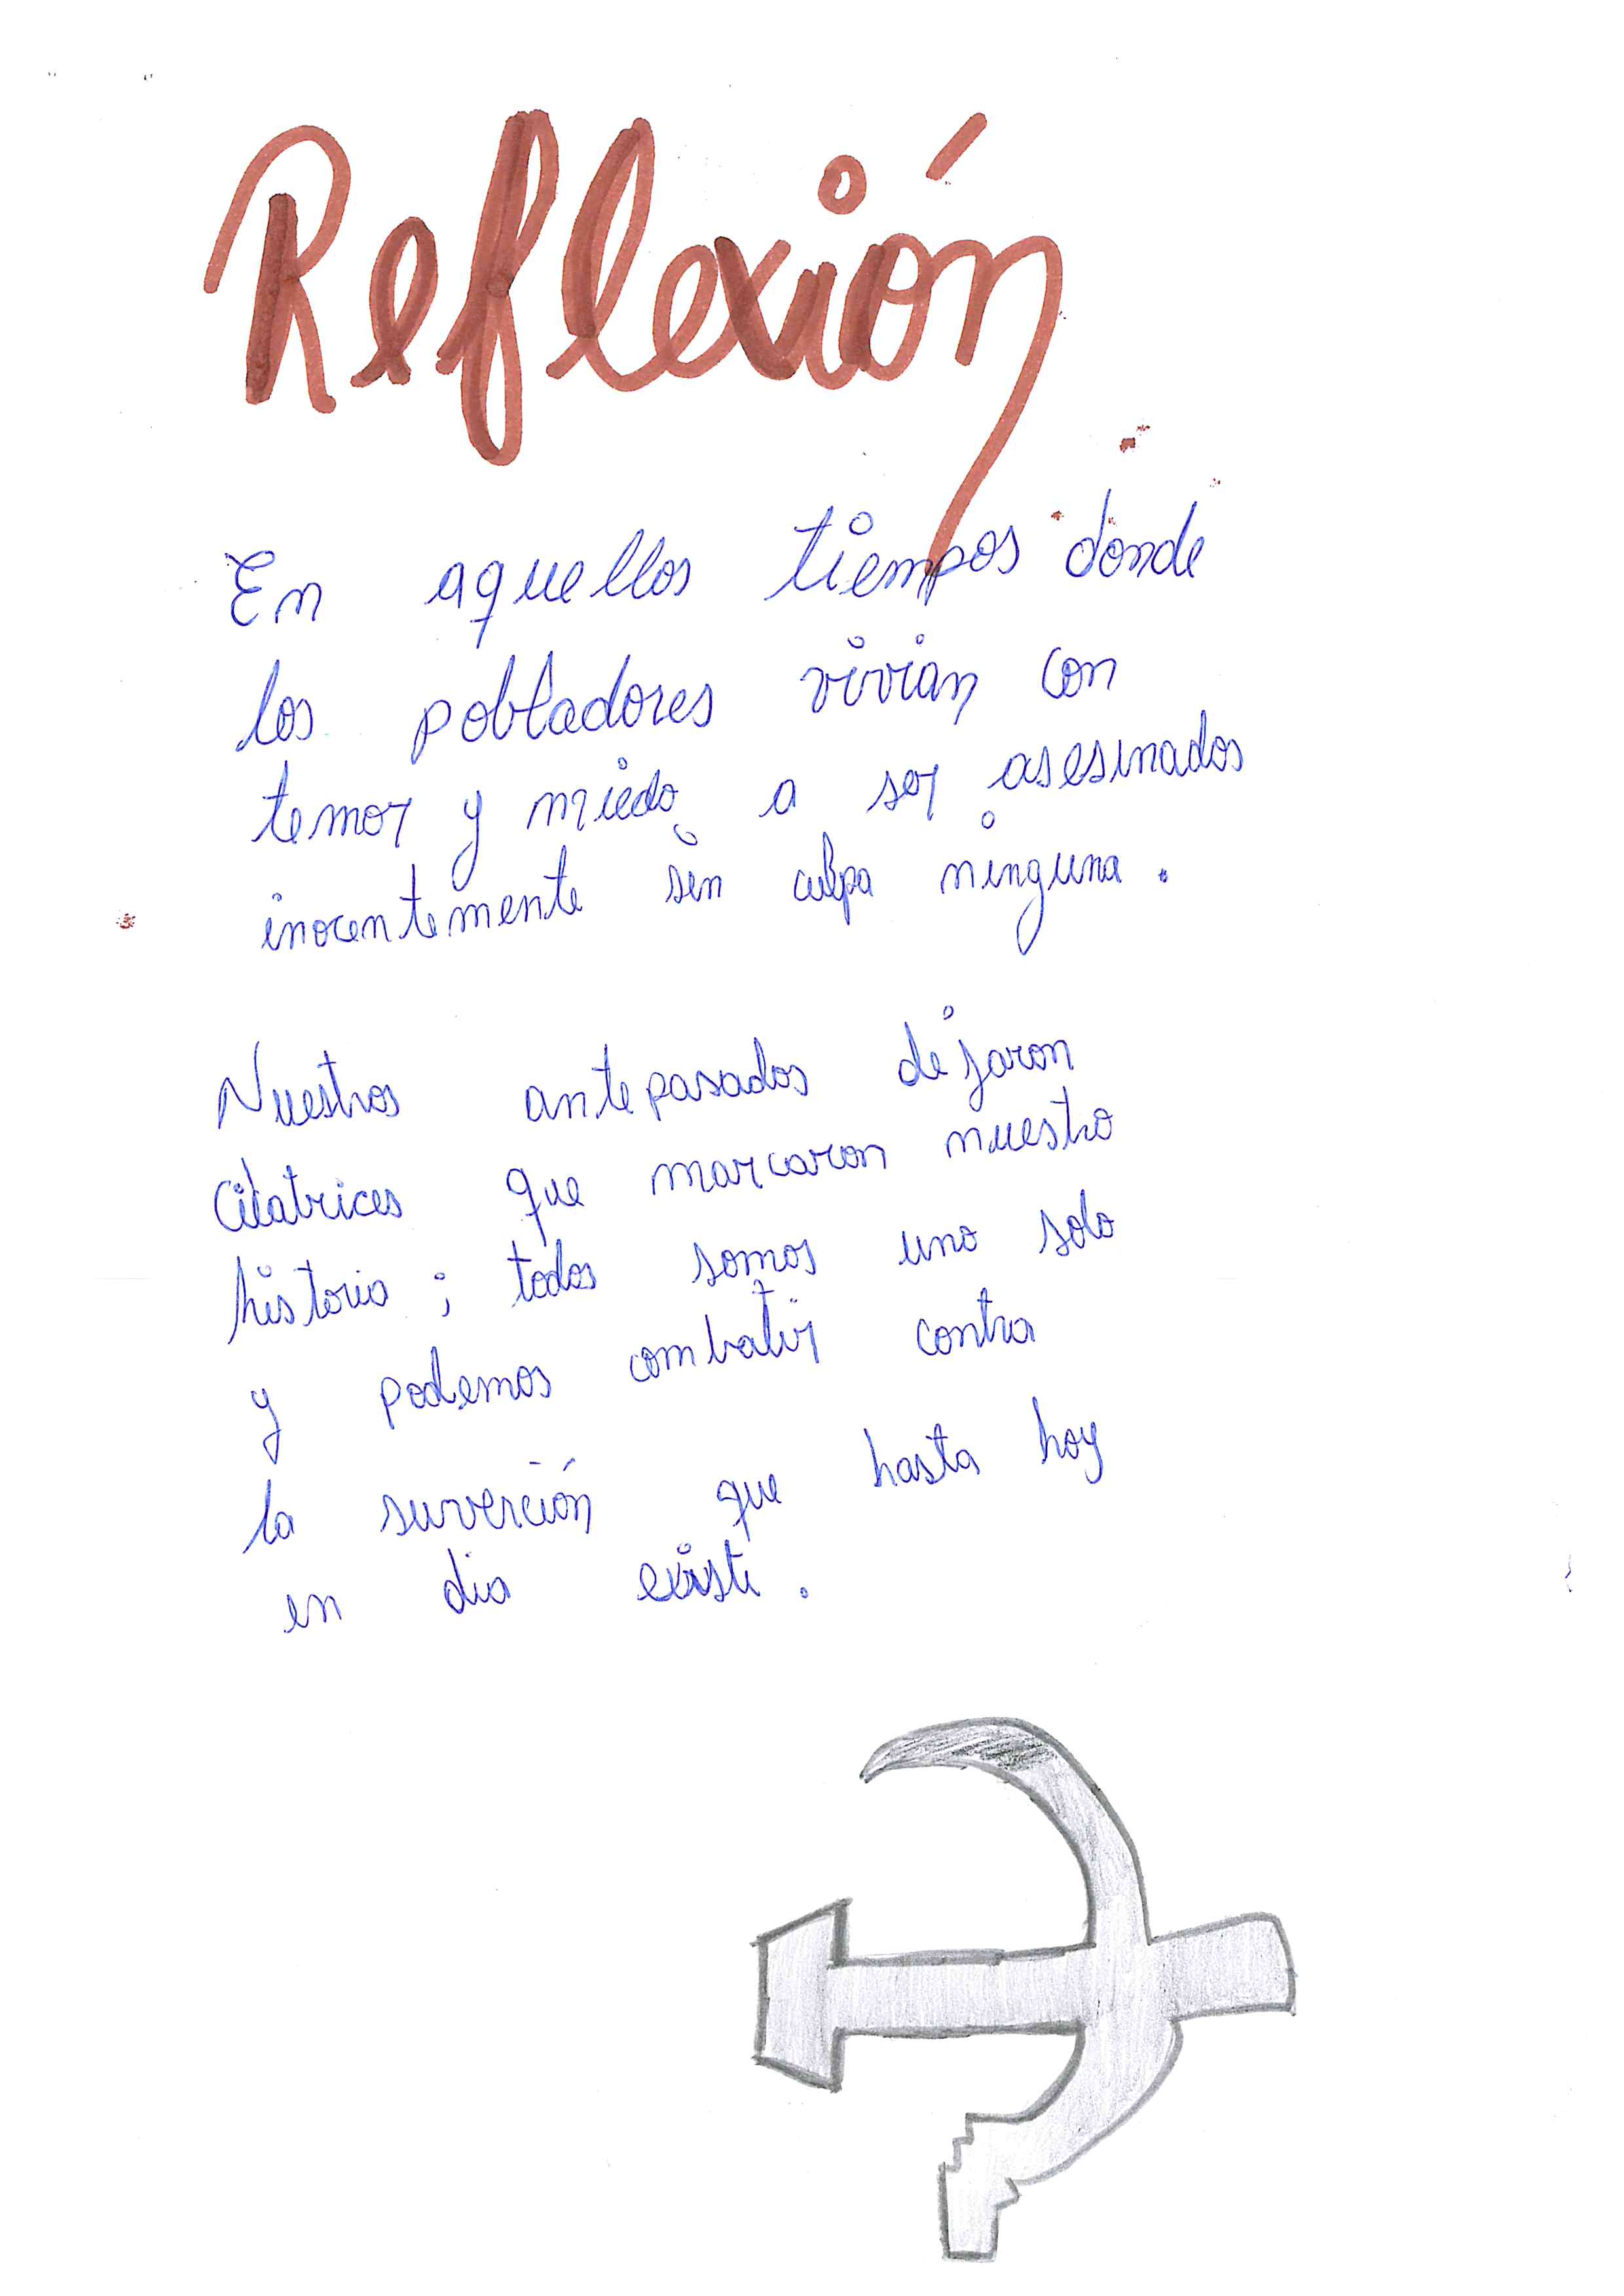 Reflexión
En aquellos tiempos donde
los pobladores vivian con
temor y miedo a ser asesinados
inocentemente sin culpa ninguna.
Nuestros antepasados dejaron
Cicatrices que marcaron nuestro
historia; todos somos uno solo
y podemos combatir contra
la surverción que hasta hoy
en dia existe.